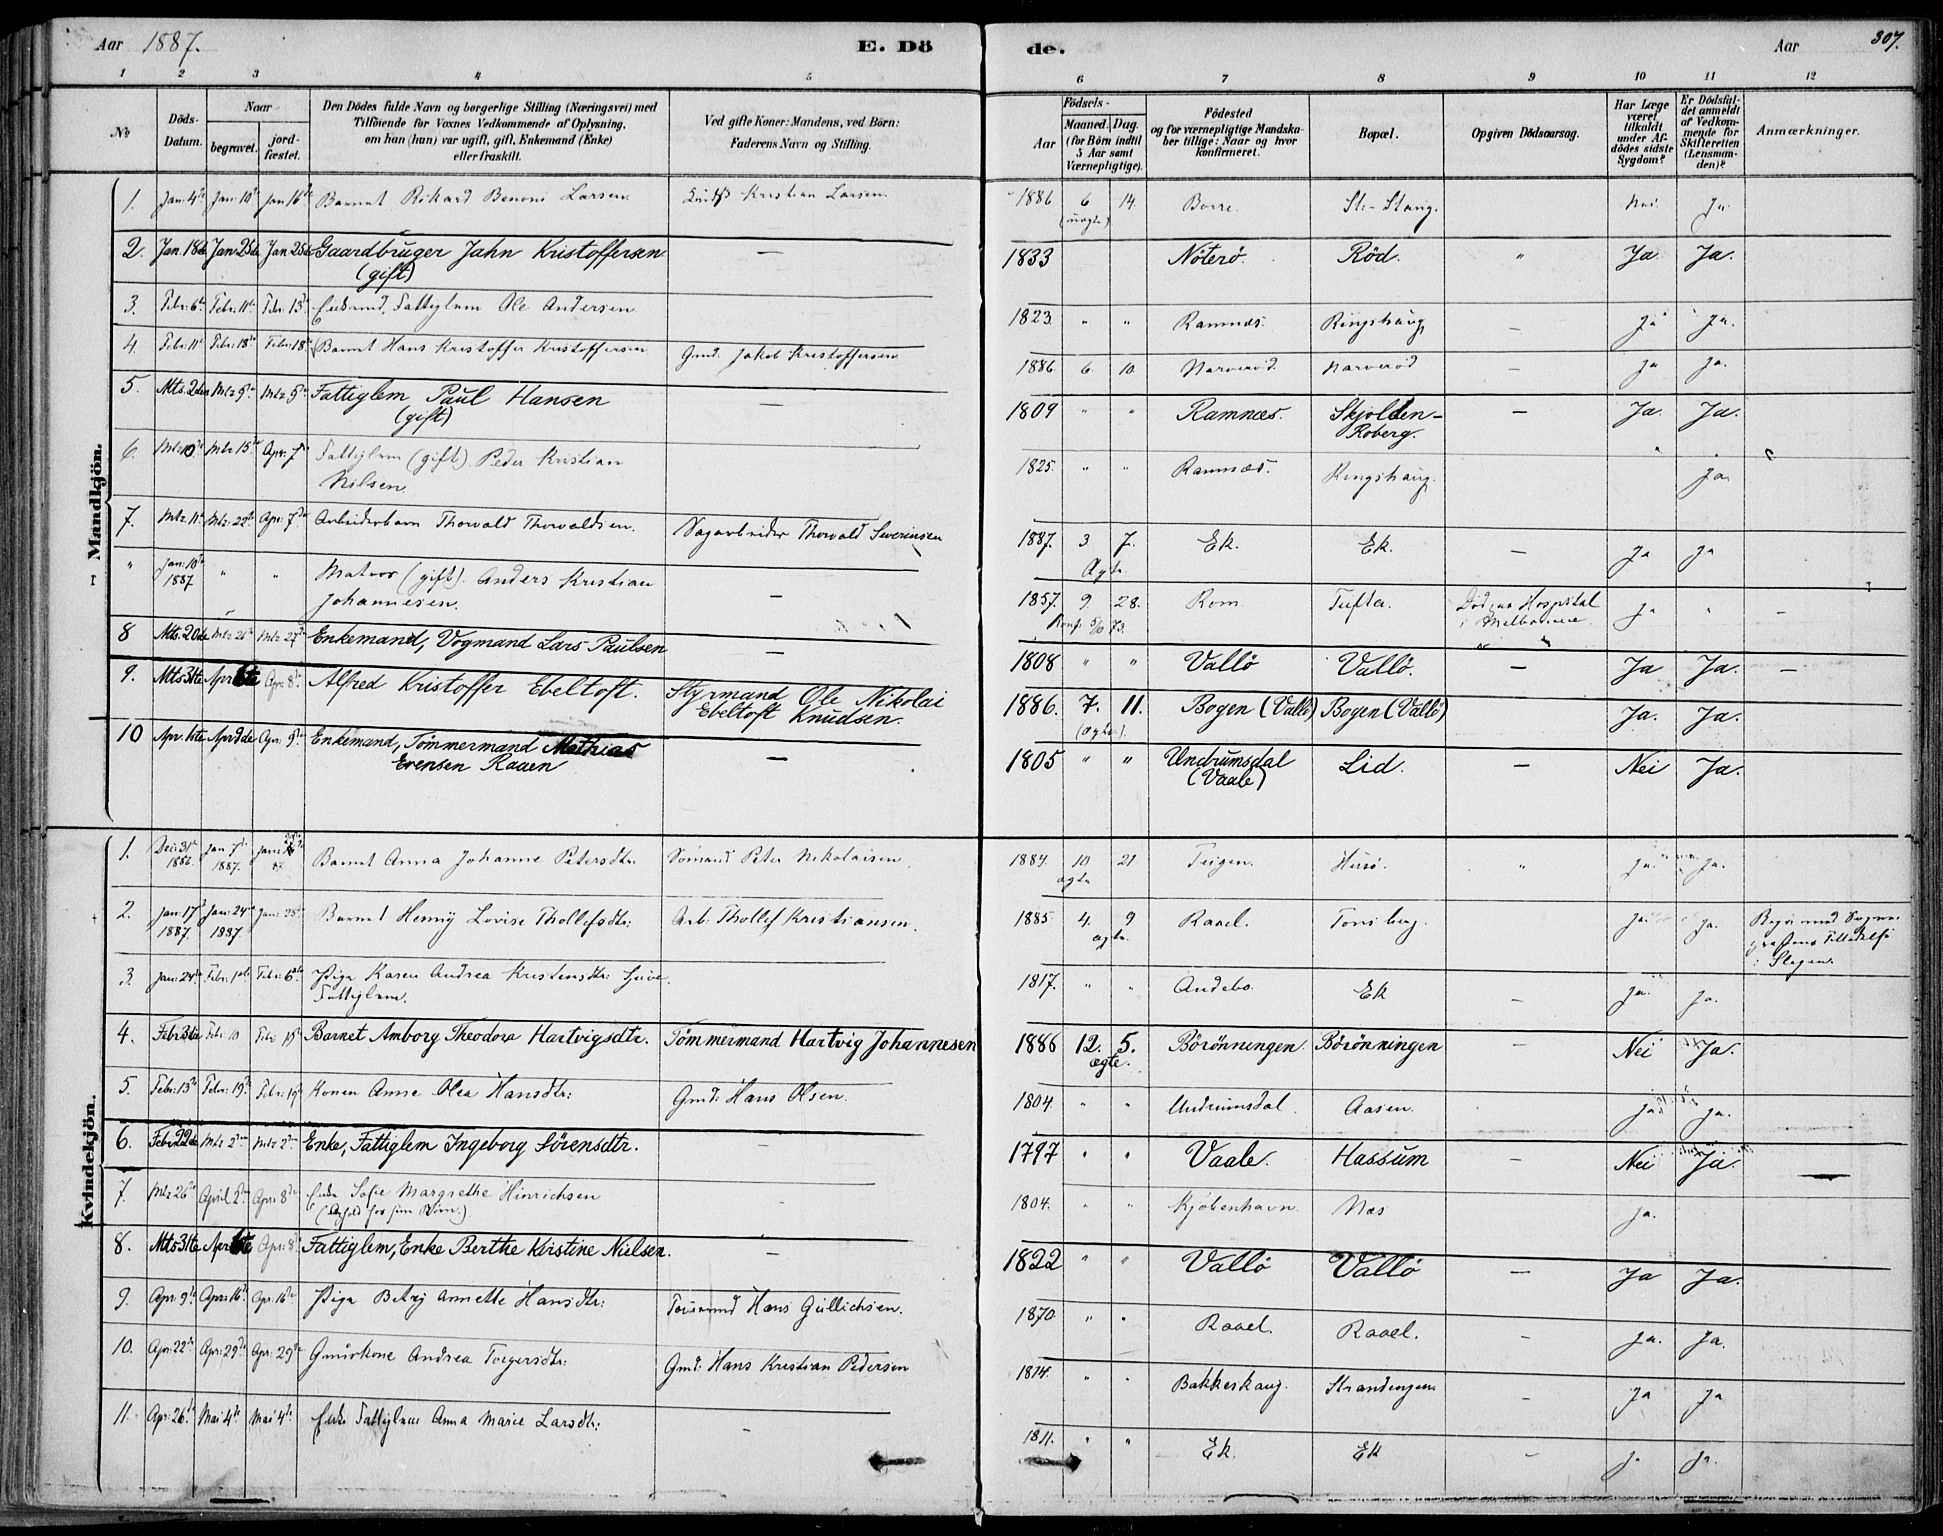 Aar 1887. E. Dö de. Aar 307.
1 2 3 4 5 6 7 8 9 10 11 12
No
Döds-Datum.
Naar begravet. jordfæstet.
Den Dödes fulde Navn og borgerlige Stilling (Næringsvei) med
Tilföiende for Voxnes Vedkommende af Oplysning,
om han (hun) var ugift, gift, Enkemand (Enke)
eller fraskilt.
Ved gifte Koner: Mandens, ved Börn:
Faderens Navn og Stilling.
Födsels-
Aar Maaned. Dag.
(for Börn indtil
5 Aar samt
Værnepligtige).
Födested
og for værnepligtige Mandskaber tillige: Naar og hvor
konfirmeret.
Bopæl.
Opgiven Dödsaarsag.
Har Læge
været
tilkaldt
under Afdödes sidste
Sygdom?
Er Dödsfaldet anmeldt
af Vedkommende for
Skifteretten
(Lensmanden)?
Anmærkninger.
Mandkjön.
1. Jan: 4de Jan: 10de Jan 16de Barnet Rikard Benoni Larsen. Kristian Larsen. 1886 6 14. Borre. Sl-Stang. Nei. Ja
(uægte)
2. Jan. 18de Jan 25de Jan 25de Gaardbruger Jahn Kristoffersen — 1833 Nöterö. Röd. " Ja Ja.
(gift)
3. Febr: 6te Febr: 11te Febr: 13de Enkemd, Fattiglem Ole Andersen 1823. " " Ramnæs. Ringshaug — Ja Ja.
4. Febr: 11te Febr: 18de Febr: 18de Barnet Hans Kristoffer Kristoffersen Gmd. Jakob Kristoffersen. 1886 6. 10. Narveröd. Narveröd — Ja Ja.
5. Mts. 2den Mtz 9de Mtz 9de Fattiglem Paul Hansen — 1809 " " Ramnæs. Skjolden- — Ja. Ja.
(gift) Roberg.
6. Mtz 10de Mtz 15de Apr: 7de Fattiglem (gift). Peder Kristian 1825. " " Ramnæs. Ringshaug. Ja.
Nilsen.
7. Mtz. 11te Mtz: 22de Apr: 7de Arbeiderbarn Thorvald Thorvaldsen. Sagarbeider Thorvald Severinsen 1887. 3 7. Ek. Ek. — Ja Ja
Ægte
" Jan: 10de 1887 " " Matros (gift). Anders Kristian — 1857. 9. 28. Rom Tufta. Död paa Hospital Ja " —
Johannesen. Konf. 5/10 73. i Melbourne.
8 Mts. 20de Mtz 26de Mtz 27de Enkemand, Vogmand Lars Paulsen — 1808 " " Vallö Vallö. — Ja Ja. —
9. Mts 31te Apr 6te Apr: 8de Alfred Kristoffer Ebeltoft. Styrmand Ole Nikolai 1886. 7. 11. Bogen (Vallö) Bogen (Vallö) Ja. Ja.
Ebeltoft Knudsen. (ægte).
10 Apr. 1ste Apr 7de Apr: 9de Enkemand, Tömmermand Mathias — 1805 " " Undrumsdal Lid. — Nei Ja.
Evensen Rauen (Vaale)
Kvindekjön.
1. Dec: 31te 1886. Jan 7de 1887. Barnet Anna Johanne Petersdtr. Sömand Peter Nikolaisen. 1884. 10 21 Teigen. Husö. " Ja. Ja.
ægte
2. Jan: 17de 1887. Jan: 24de 1887. Jan: 25de Barnet Henny Lovise Thollefsdtr: Arb: Thollef Kristiansen. 1885 4. 9 Raael. Tönsberg. Ja: Ja.
ægte.
i Slagen.
3. Jan: 24de Febr: 1ste Febr: 6te Pige Karen Andrea Kristensdtr: 1817. " " Andebo. Ek — Ja. Ja.
Fattiglem.
4. Febr 3die Febr 10 Febr 19de Barnet Amborg Theodora Hartvigsdtr. Tömmermand Hartvig Johannesen 1886 12. 5. Börönningen. Börönningen — Nei Ja.
ægte.
5. Febr: 13de Febr: 19de Febr: 19de Konen Anne Olea Hansdtr: Gmd: Hans Olsen. 1804. " " Undrumsdal. Aasen. Ja Ja.
6. Febr 22de Mtz 2den Mtz 2den Enke, Fattiglem Ingeborg Sörensdtr. — 1797 " " Vaale. Hassum — Nei Ja.
7. Mtz 26de April 2den Apr: 8de Enke Sofie Margrethe Hinrichsen 1804. " " Kjöbenhavn. Næs Ja.
8. Mts 31te Apr 6te Apr: 8de Fattiglem, Enke Berthe Kirstine Nielsen. — 1822 " " Vallö Vallö — Ja Ja.
9. Apr: 9de Apr: 16de Apr: 16de Pige Betzy Annette Hansdtr: Hans Gullichsen. 1870. " " Raael. Raael. — Ja. Ja.
10. Apr: 22de Apr: 29de Apr: 29de Gmdskone Andrea Torgersdtr: Gmd: Hans Kristian Pedersen 1814. " " Bakkeskaug. Strandengen. — Ja Ja
11. Apr: 26de Mai 4de Mai 4de Enke Fattiglem Anna Marie Larsdtr: - 1811. " " Ek. Ek — Ja Ja.